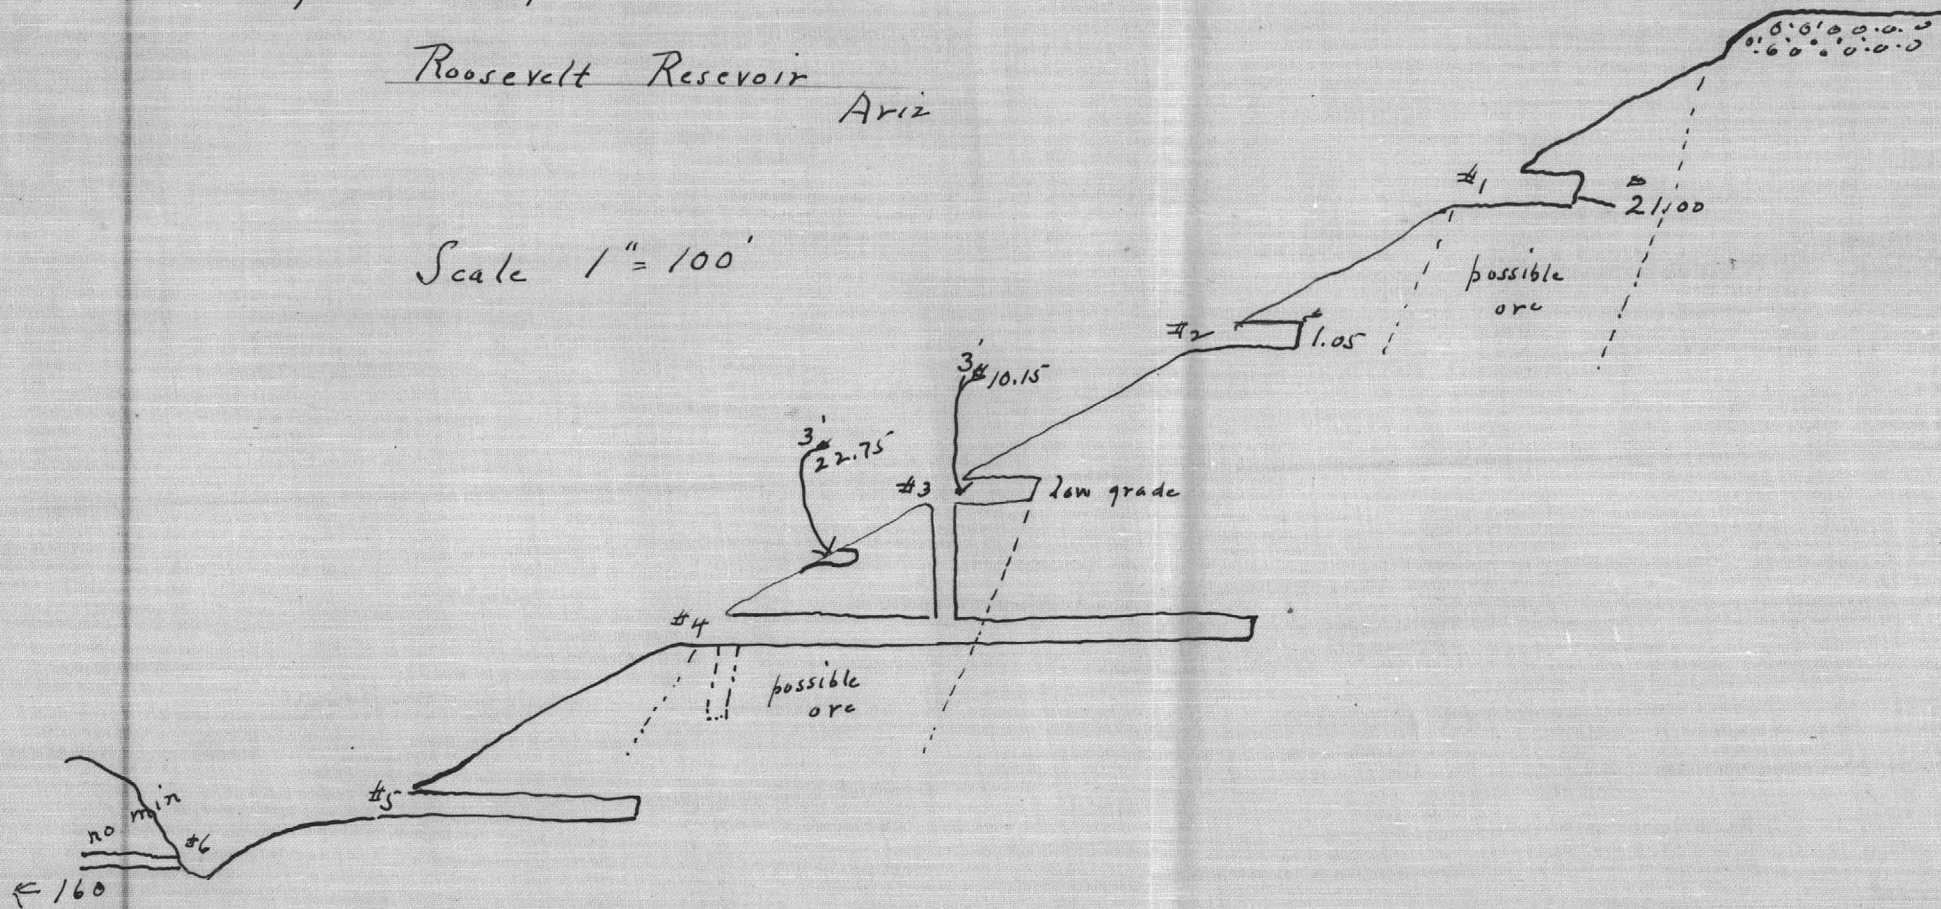 Roosevelt Resevoir
Ariz
Scale 1" = 100'
#1
$21.00
possible
ore
#2
$1.05
3'
$10.15
3'
$22.75
#3
low grade
#4
possible
ore
#5
no min
#6
← 160